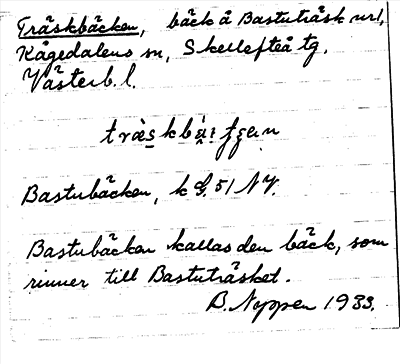 Träskbäcken, bäck å Bastuträsk url,
Kågedalens sn, Skellefteå tg.
Västerb. l.
Bastubäcken, k G. 51 NV.
Bastubäcken kallas den bäck, som
rinner till Bastuträsket.
B. Noppen 1933.